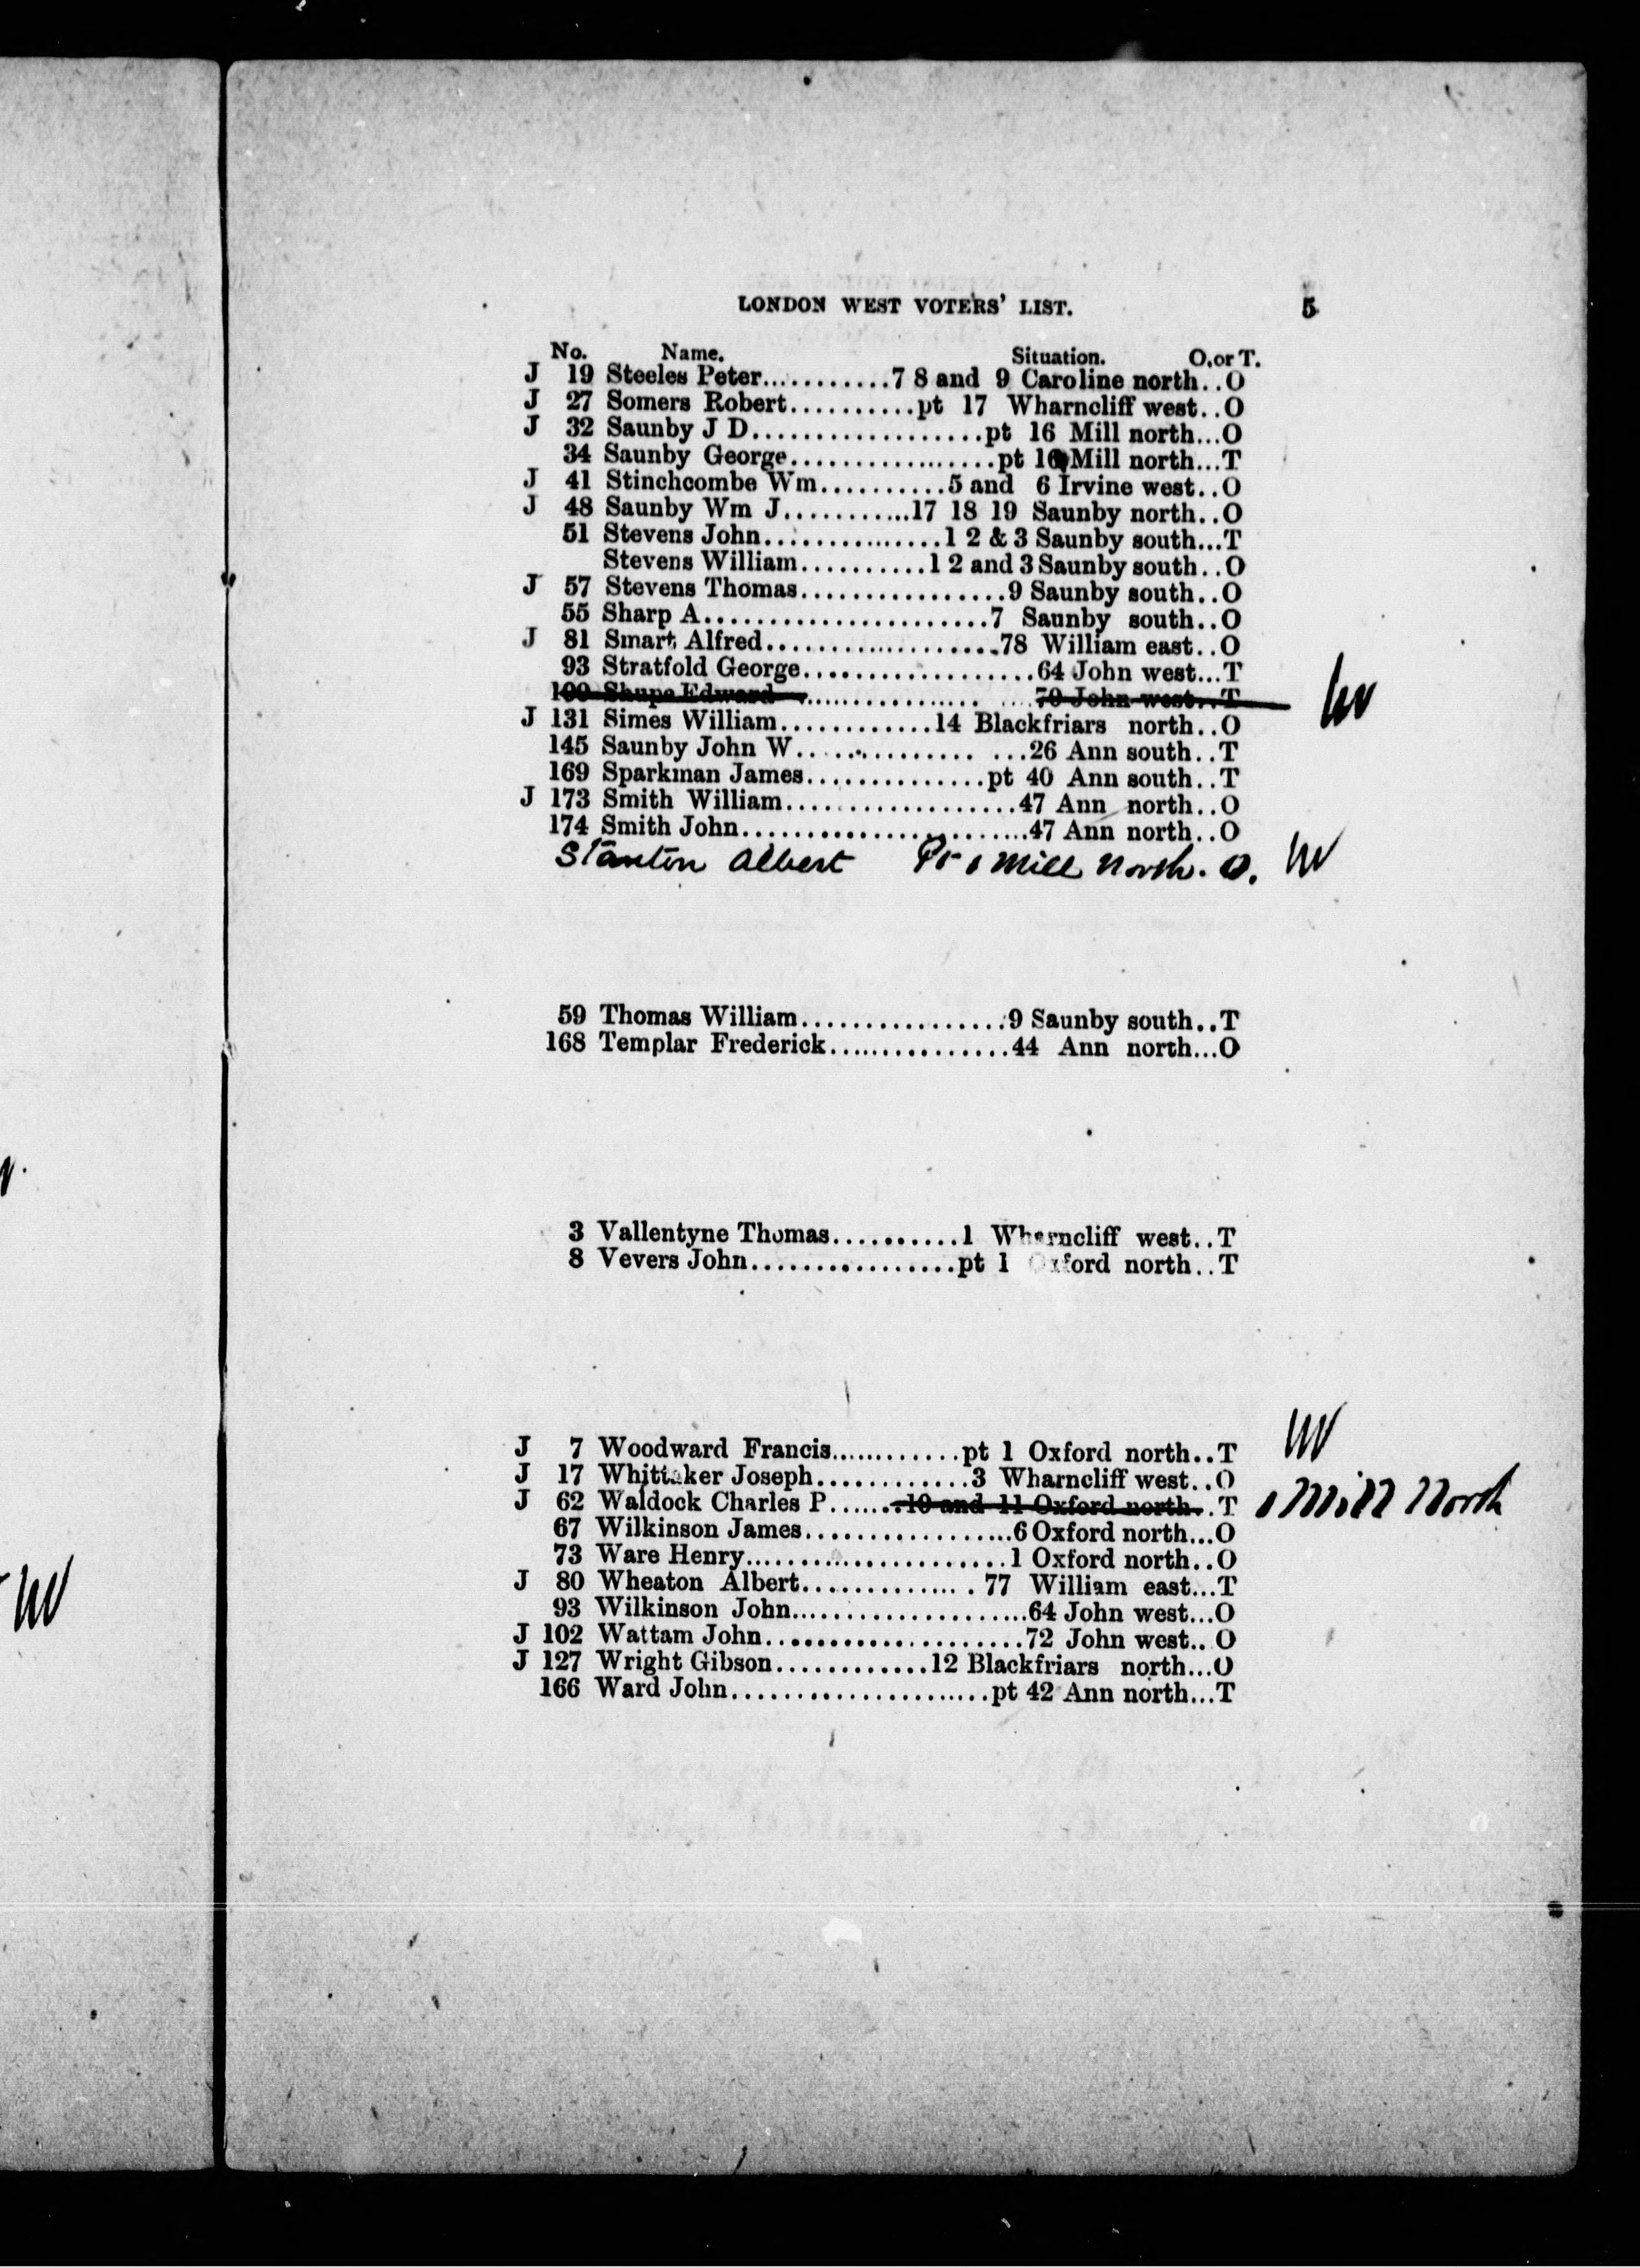 LONDON WEST VOTERS' LIST. 5
No. Name. Situation. O. or T.
J 19 Steeles Peter...........7 8 and 9 Caroline north..O
J 27 Somers Robert..........pt 17 Wharncliff west..O
J 32 Saunby J D..................pt 16 Mill north...O
34 Saunby George...............pt 16 Mill north...T
J 41 Stinchcombe Wm..........5 and 6 Irvine west..O
J 48 Saunby Wm J...........17 18 19 Saunby north..O
51 Stevens John..............1 2 & 3 Saunby south...T
Stevens William..........1 2 and 3 Saunby south..O
J 57 Stevens Thomas................9 Saunby south..O
55 Sharp A......................7 Saunby south..O
J 81 Smart Alfred..................78 William east..O
93 Stratfold George..................64 John west...T
100 Shupe Edward.................70 John west..T
J 131 Simes William............14 Blackfriars north..O
145 Saunby John W.................26 Ann south..T
169 Sparkman James..............pt 40 Ann south..T
J 173 Smith William..................47 Ann north..O
174 Smith John......................47 Ann north..O
Stanton Albert Pt 1 Mill North. O.
59 Thomas William................9 Saunby south..T
168 Templar Frederick..............44 Ann north...O
3 Vallentyne Thomas..........1 Wharncliff west..T
8 Vevers John................pt 1 Oxford north..T
J 7 Woodward Francis............pt 1 Oxford north..T
J 17 Whittaker Joseph............3 Wharncliff west..O
J 62 Waldock Charles P.......10 and 11 Oxford north..T 1 Mill North
67 Wilkinson James..................6 Oxford north...O
73 Ware Henry....................1 Oxford north..O
J 80 Wheaton Albert..............77 William east...T
93 Wilkinson John....................64 John west...O
J 102 Wattam John....................72 John west..O
J 127 Wright Gibson............12 Blackfriars north...O
166 Ward John....................pt 42 Ann north...T